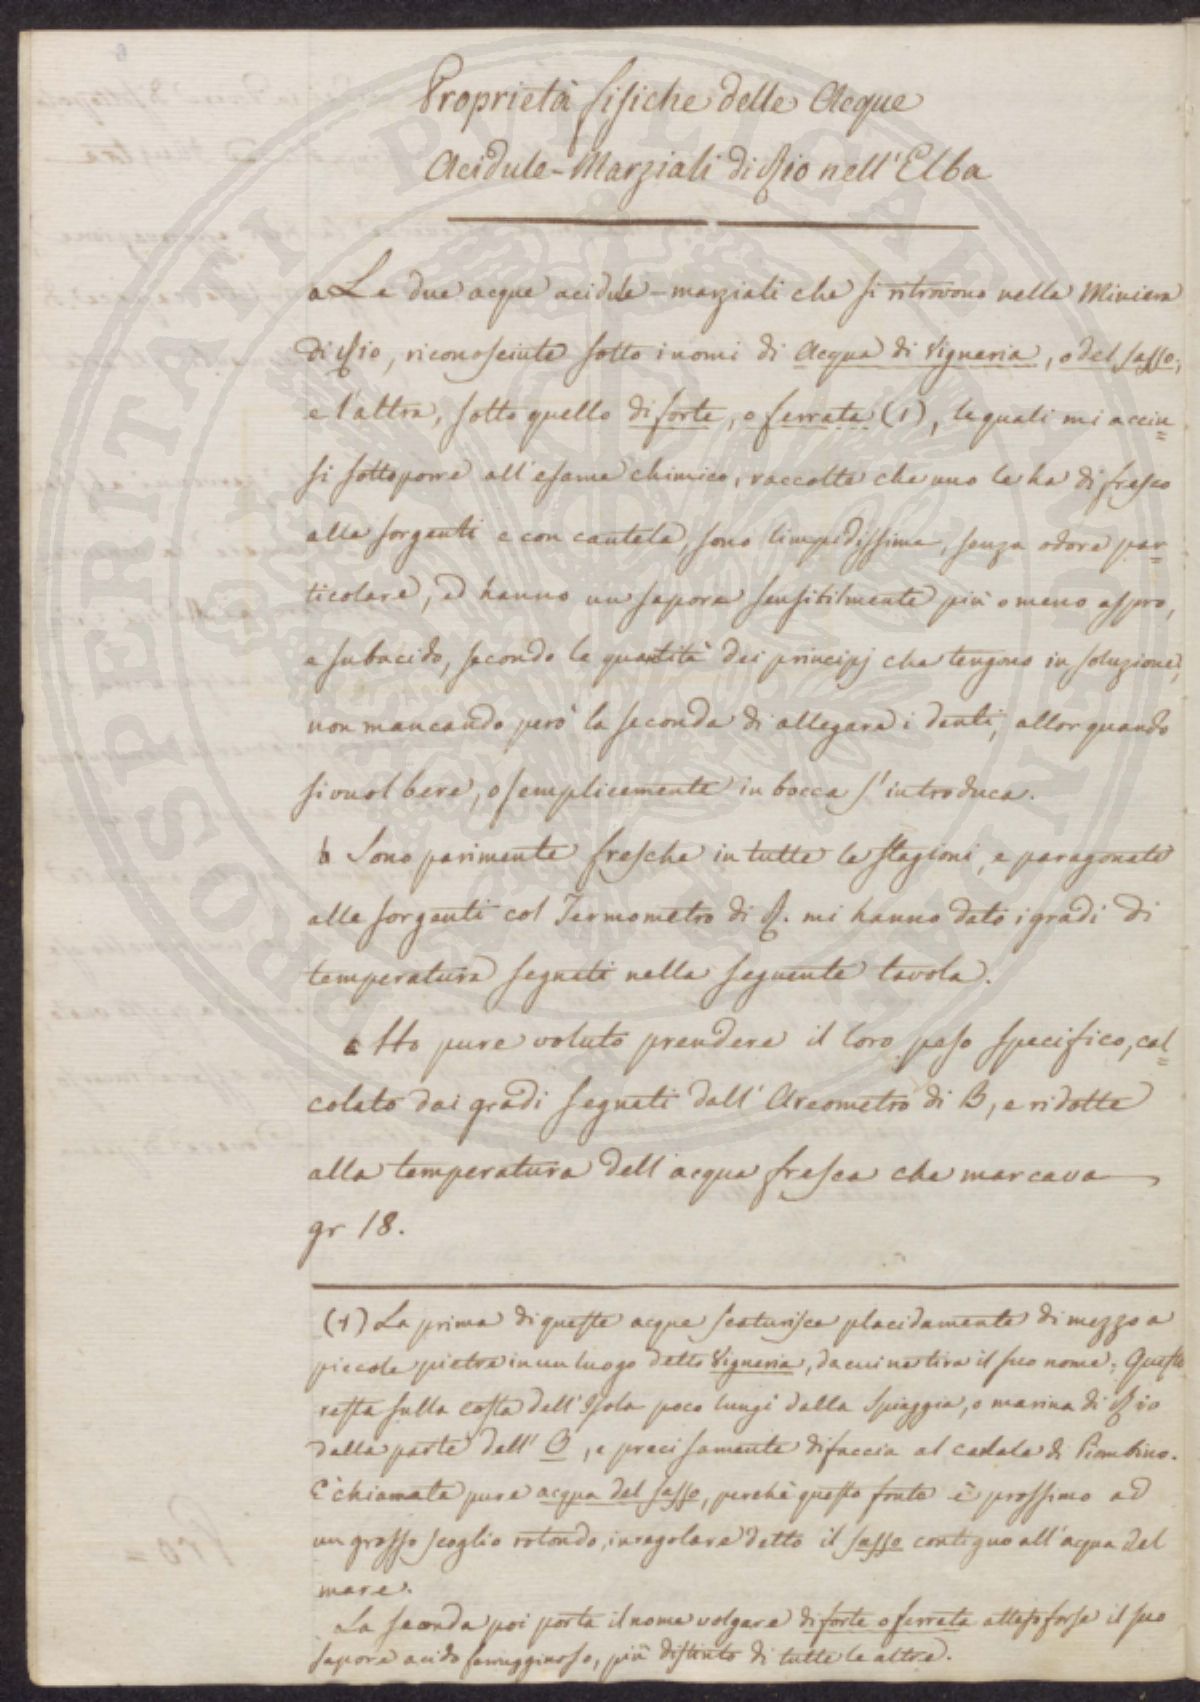 Proprietà fisiche delle Acque
Acidule-Marziali di Rio nell'Elba
a Le due acque acidule-marziali che si ritrovono nella Miniera
di Rio, riconosciute sotto i nomi di Acqua di Vigneria, o del sasso,
e l'altra, sotto quello di forte, o ferrata (1), le quali mi accin=
si sottoporre all'esame chimico, raccolte che uno le ha di fresco
alle sorgenti e con cautela, sono limpidissime, senza odore par=
ticolare, ed hanno un sapore sensibilmente più o meno aspro,
e subacido, secondo le quantità dei principj che tengono in soluzione,
non mancando però la seconda di allegare i denti, allorquando
si vuol bere, o semplicemente in bocca s'introduca.
b Sono parimente fresche in tutte le stagioni, e paragonate
alle sorgenti col Termometro di R. mi hanno dato i gradi di
temperatura segnati nella seguente tavola.
c Ho pure voluto prendere il loro peso specifico, cal=
colato dai gradi segnati dall'Areometro di B, e ridotte
alla temperatura dell'acqua fresca che marcava
gr 18.
(1) La prima di queste acque scaturisce placidamente di mezzo a
piccole pietre in un luogo detto Vigneria, da cui ne tira il suo nome; Questo
resta sulla costa dell'Isola poco lungi dalla Spiaggia, o marina di Rio
dalla parte dell' O, e precisamente di faccia al canale di Piombino.
E' chiamata pure acqua del sasso, perchè questo fonte è prossimo ad
un grosso scoglio rotondo, inregolare detto il sasso contiguo all'acqua del
mare.
La seconda poi porta il nome volgare di forte o ferrata atteso forse il suo
sapore acido ferrugginoso, più distinto di tutte le altre.